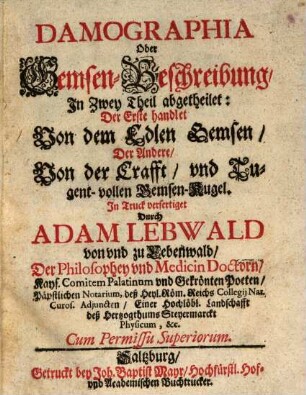 DAMOGRAPHIA
Oder
Gemsen-Beschreibung/
In Zwey Theil abgetheilet:
Der Erste handlet
Von dem Edlen Gemsen/
Der Andere/
Von der Crafft/ vnd Tu-
gent-vollen Gemsen-Kugel.
In Truck verfertiget
Durch
ADAM LEBWALD
von vnd zu Lebenwald/
Der Philosophey vnd Medicin Doctorn/
Kays. Comitem Palatinum vnd Gekrönten Poeten/
Päpstlichen Notarium, deß Heyl. Röm. Reichs Collegij Naz.
Curos. Adjuncten/ Einer Hochlöbl. Landschafft
deß Hertzogthums Steyermarckt
Physicum, &c.
Cum Permissu Superiorum.
Saltzburg/
Getruckt bey Joh. Baptist Mayr/ Hochfürstl. Hof-
vnd Academischen Buchtrucker.